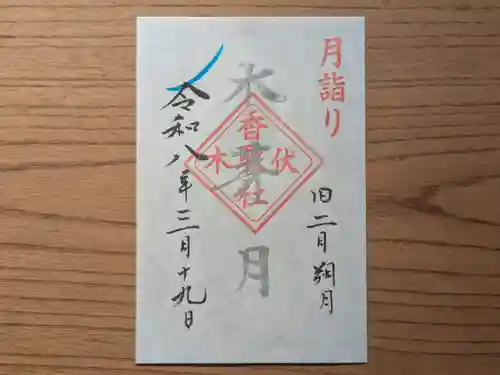 月詣り
旧二月朔月
木
月
香取社
木
伏
令和八年三月十九日